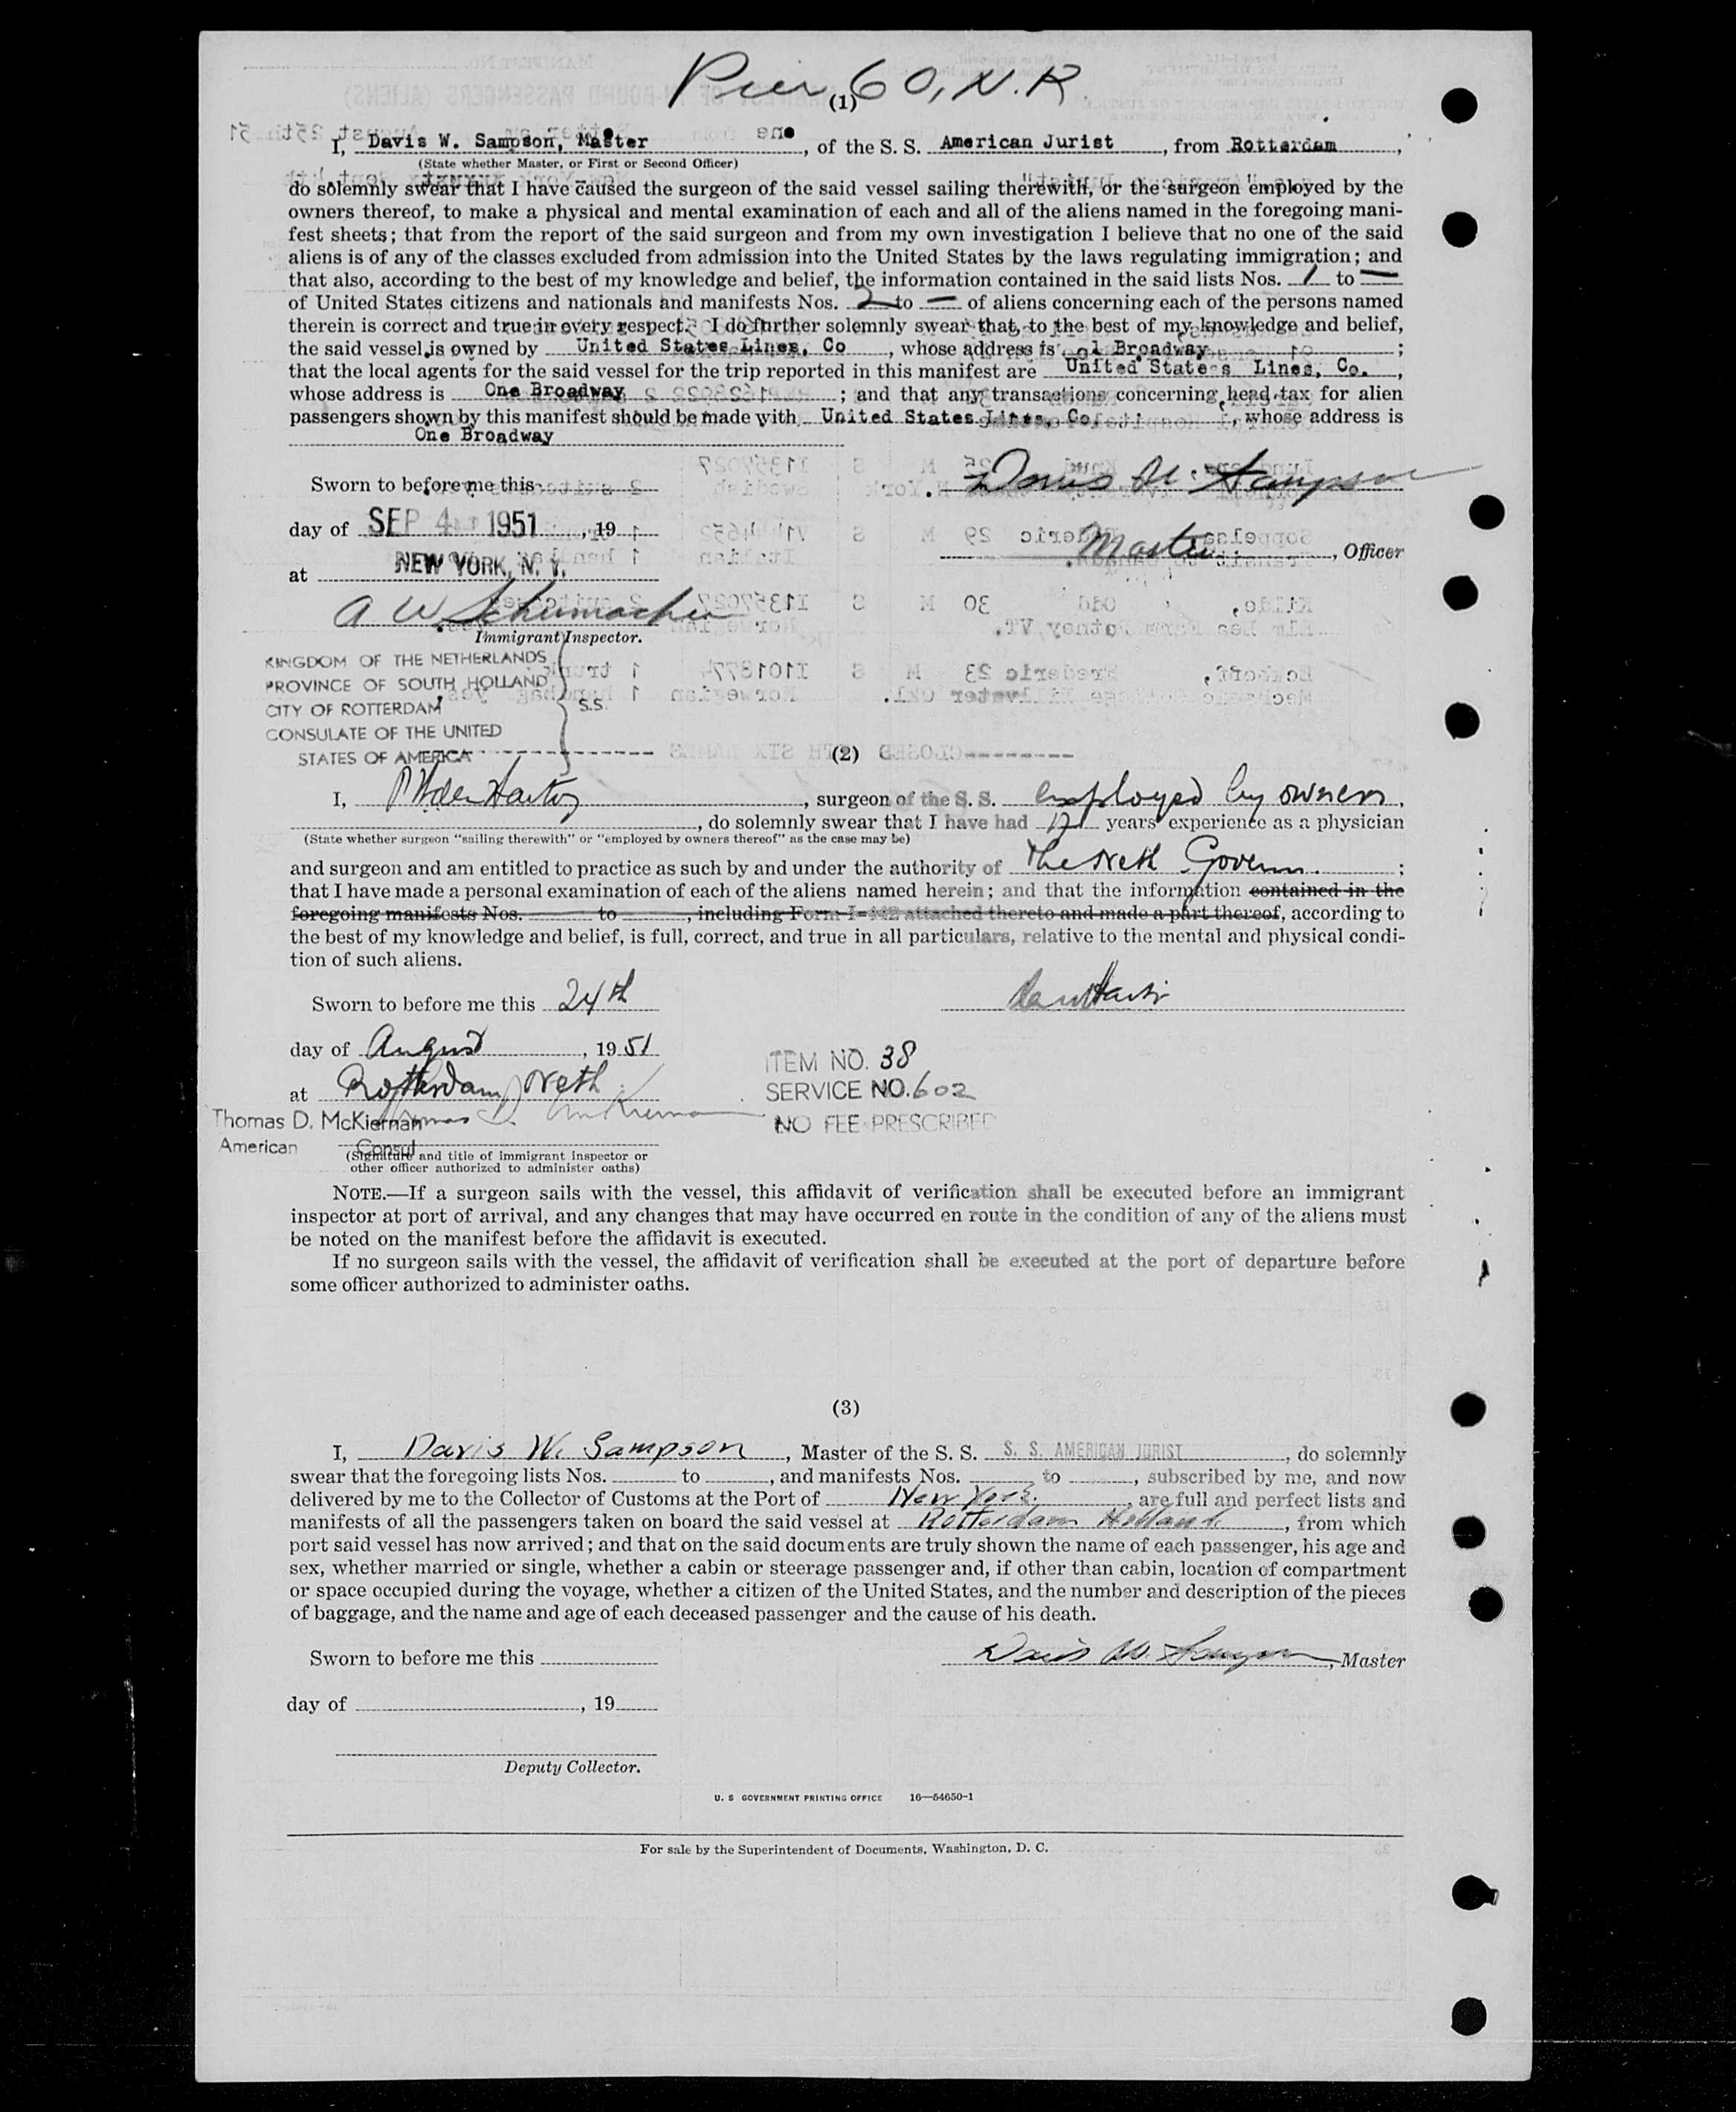 Pier 60, N.R.
(1)
I, Davis W. Sampson, Master, of the S. S. American Jurist, from Rotterdam,
(State whether Master, or First or Second Officer)
do solemnly swear that I have caused the surgeon of the said vessel sailing therewith, or the surgeon employed by the
owners thereof, to make a physical and mental examination of each and all of the aliens named in the foregoing mani-
fest sheets; that from the report of the said surgeon and from my own investigation I believe that no one of the said
aliens is of any of the classes excluded from admission into the United States by the laws regulating immigration; and
that also, according to the best of my knowledge and belief, the information contained in the said lists Nos. 1 to —
of United States citizens and nationals and manifests Nos. 2 to — of aliens concerning each of the persons named
therein is correct and true in every respect. I do further solemnly swear that, to the best of my knowledge and belief,
the said vessel is owned by United States Lines, Co, whose address is 1 Broadway;
that the local agents for the said vessel for the trip reported in this manifest are United States Lines, Co.,
whose address is One Broadway; and that any transactions concerning head tax for alien
passengers shown by this manifest should be made with United States Lines, Co., whose address is
One Broadway
Sworn to before me this Davis W. Sampson
day of SEP 4 1951, 19
Master, Officer
at NEW YORK, N. Y.
A W Schumacher
Immigrant Inspector.
KINGDOM OF THE NETHERLANDS
PROVINCE OF SOUTH HOLLAND
CITY OF ROTTERDAM S.S.
CONSULATE OF THE UNITED
STATES OF AMERICA
(2)
I, , surgeon of the S. S. employed by owners,
, do solemnly swear that I have had years' experience as a physician
(State whether surgeon "sailing therewith" or "employed by owners thereof" as the case may be)
and surgeon and am entitled to practice as such by and under the authority of the Neth. Govern.;
that I have made a personal examination of each of the aliens named herein; and that the information contained in the
foregoing manifests Nos. to , including Form I-442 attached thereto and made a part thereof, according to
the best of my knowledge and belief, is full, correct, and true in all particulars, relative to the mental and physical condi-
tion of such aliens.
Sworn to before me this 24th
day of August, 1951
ITEM NO. 38
at Rotterdam, Neth.
SERVICE NO. 602
Thomas D. McKiernan Thomas D. McKiernan
NO FEE PRESCRIBED
American Consul
(Signature and title of immigrant inspector or
other officer authorized to administer oaths)
NOTE.—If a surgeon sails with the vessel, this affidavit of verification shall be executed before an immigrant
inspector at port of arrival, and any changes that may have occurred en route in the condition of any of the aliens must
be noted on the manifest before the affidavit is executed.
If no surgeon sails with the vessel, the affidavit of verification shall be executed at the port of departure before
some officer authorized to administer oaths.
(3)
I, Davis W. Sampson, Master of the S. S. S. S. AMERICAN JURIST, do solemnly
swear that the foregoing lists Nos. to , and manifests Nos. to , subscribed by me, and now
delivered by me to the Collector of Customs at the Port of New York, are full and perfect lists and
manifests of all the passengers taken on board the said vessel at Rotterdam Holland, from which
port said vessel has now arrived; and that on the said documents are truly shown the name of each passenger, his age and
sex, whether married or single, whether a cabin or steerage passenger and, if other than cabin, location of compartment
or space occupied during the voyage, whether a citizen of the United States, and the number and description of the pieces
of baggage, and the name and age of each deceased passenger and the cause of his death.
Sworn to before me this Davis W. Sampson, Master
day of , 19
Deputy Collector.
U. S GOVERNMENT PRINTING OFFICE 16—54650-1
For sale by the Superintendent of Documents, Washington, D. C.